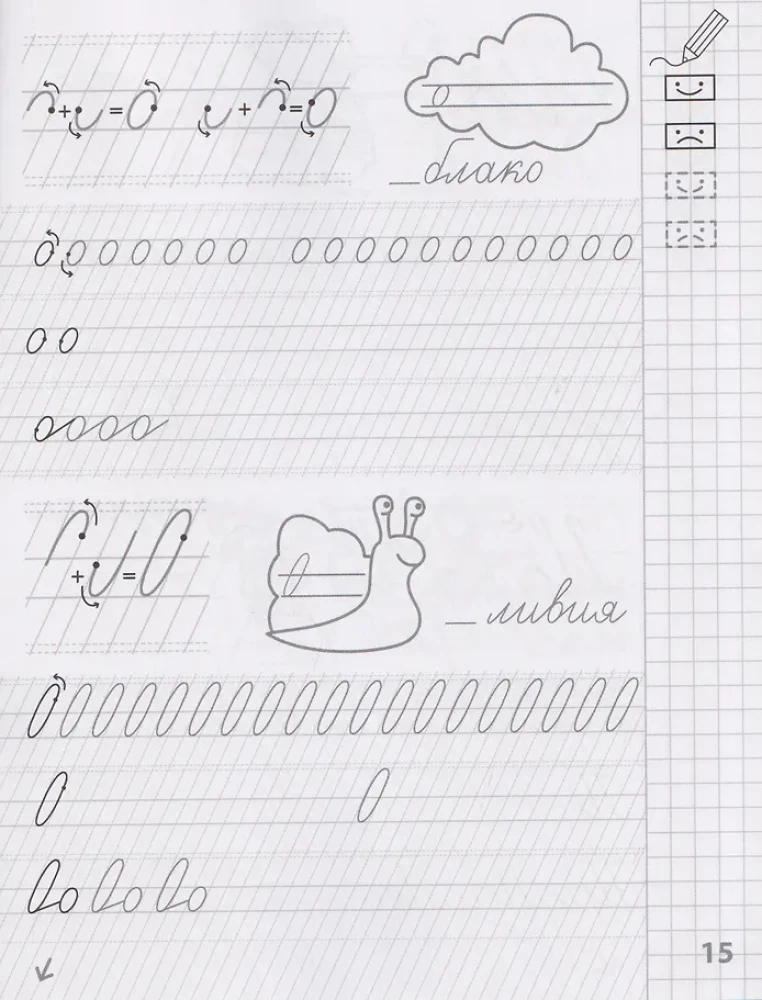 + = о + = о
о
_блако
о о о о о о о о о о о о о о о о о о
о о
о о о о
+ = О
О
_ливия
О О О О О О О О О О О О О О О О О О О
О О
Оо Оо Оо
15